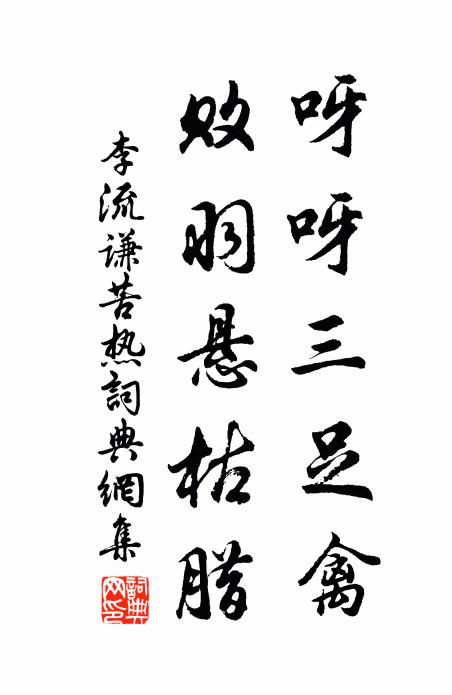 呀呀三足禽
败羽悬枯腊
李流谦苦热詞典網集
詞典网印